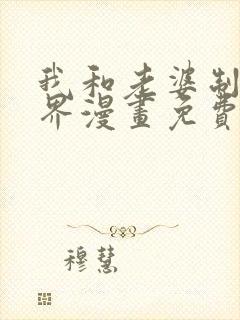 我和老婆制
界漫畫免費
穆慧